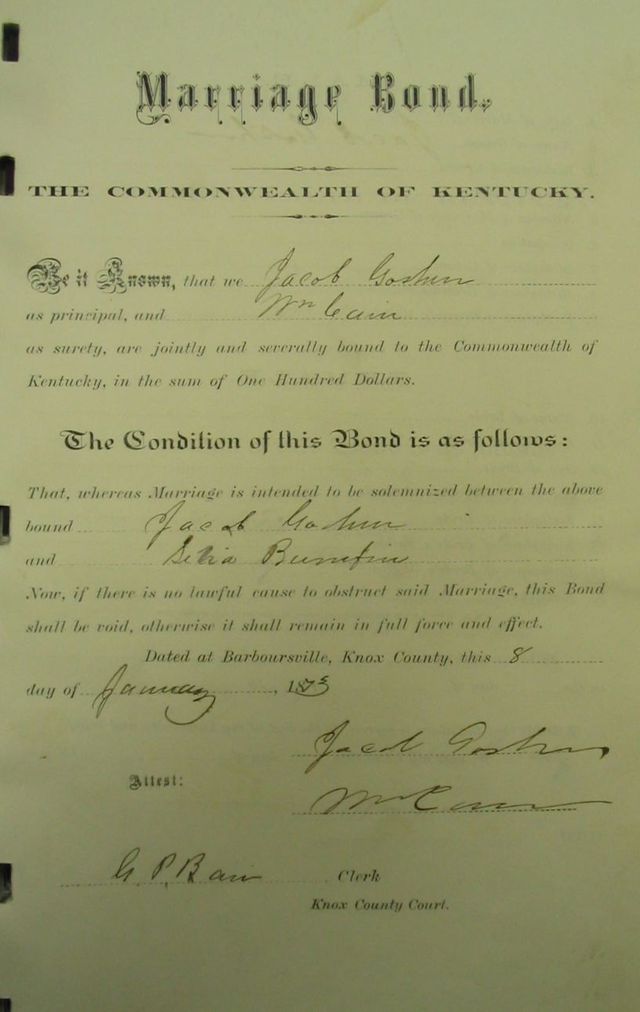 Marriage Bond.
THE COMMONWEALTH OF KENTUCKY.
Be it Known, that we Jacob Goshen
as principal, and Wm Cain
as surety, are jointly and severally bound to the Commonwealth of
Kentucky, in the sum of One Hundred Dollars.
The Condition of this Bond is as follows:
That, whereas Marriage is intended to be solemnized between the above
bound Jacob Goshen
and
Now, if there is no lawful cause to obstruct said Marriage, this Bond
shall be void, otherwise it shall remain in full force and effect.
Dated at Barboursville, Knox County, this 8
day of January, 187
Jacob Goshen
Attest:
Wm Cain
G. P. Bain Clerk
Knox County Court.